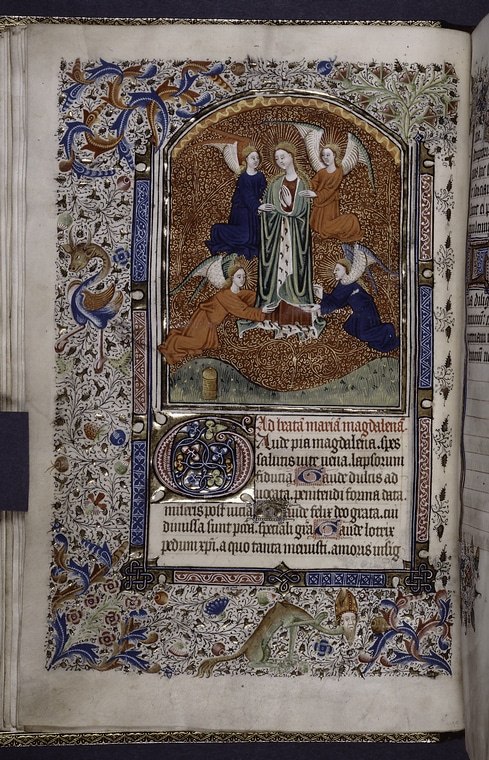 Ad beatā mariā magdalenā
Gaude pia magdalena. spes
salutis vite vena. lapsorum
fiducia. Gaude dulcis ad
uocata. penitendi forma data.
miseris post uicia. Gaude felix deo grata. cui
dimissa sunt pctā. speciali grā. Gaude lotrix
pedum xp̄i. a quo tanta meruisti. amoris insig